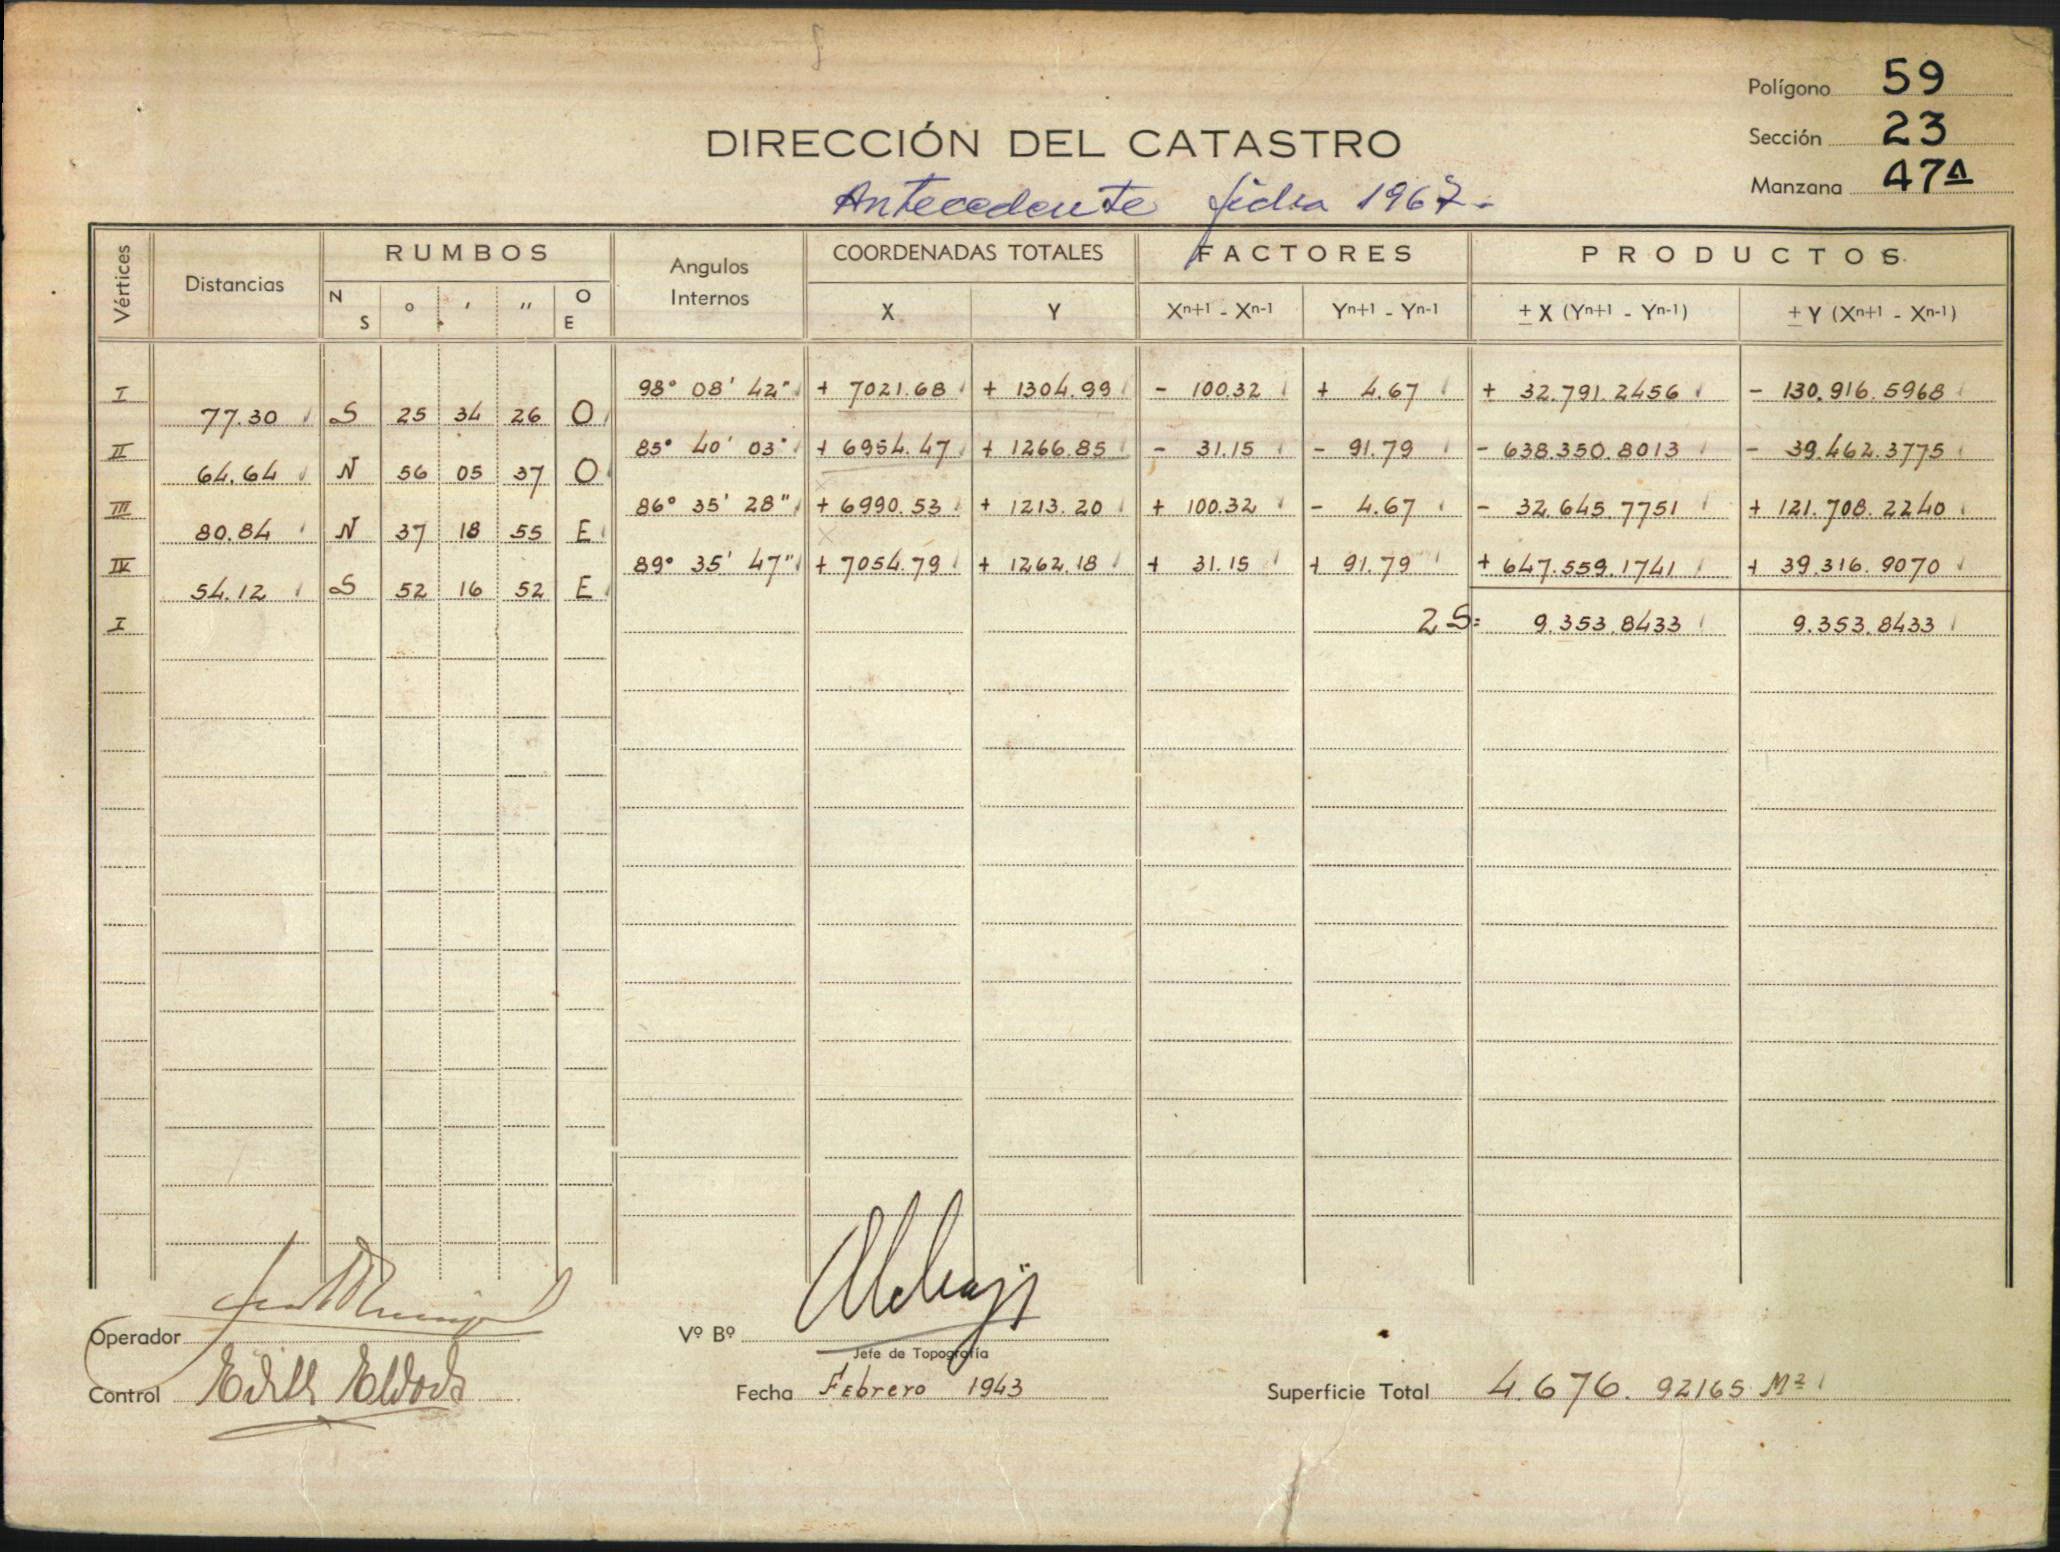 Polígono 59
Sección 23
Manzana 47A
DIRECCIÓN DEL CATASTRO
Antecedente ficha 1967.-
Vértices Distancias RUMBOS Angulos Internos COORDENADAS TOTALES FACTORES PRODUCTOS
N S ° ' " O E X Y Xn+1 - Xn-1 Yn+1 - Yn-1 ± X (Yn+1 - Yn-1) ± Y (Xn+1 - Xn-1)
I 98° 08' 42" + 7021.68 + 1304.99 - 100.32 + 4.67 + 32.791.2456 - 130.916.5968
77.30 S 25 34 26 O
II 85° 40' 03" + 6954.47 + 1266.85 - 31.15 - 91.79 - 638.350.8013 - 39.462.3775
64.64 N 56 05 37 O
III 86° 35' 28" + 6990.53 + 1213.20 + 100.32 - 4.67 - 32.645.7751 + 121.708.2240
80.84 N 37 18 55 E
IV 89° 35' 47" + 7054.79 + 1262.18 + 31.15 + 91.79 + 647.559.1741 + 39.316.9070
54.12 S 52 16 52 E
I 2S= 9.353.8433 9.353.8433
Operador Vº Bº
Jefe de Topografía
Control Fecha Febrero 1943 Superficie Total 4.676.92165 M2